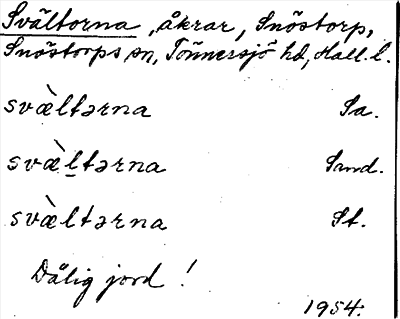 Svältorna, åkrar, Snöstorp,
Snöstorps sn, Tönnersjö hd, Hall. l.
svæ̀ltərna Sa.
svæ̀l̠tərna Smd.
svæ̀ltərna St.
Dålig jord!
1954.